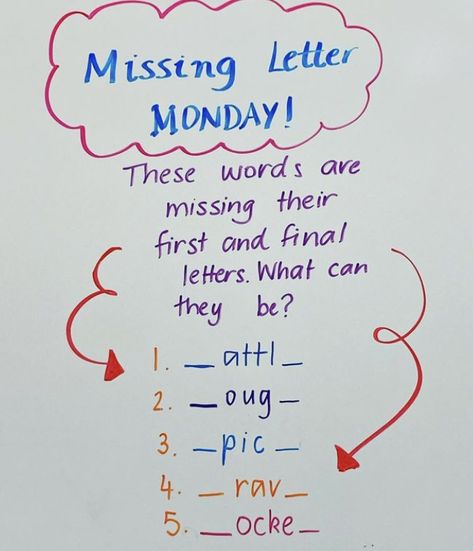 Missing Letter
MONDAY!
These words are
missing their
first and final
letters. What can
they be?
1. _ attl _
2. _ oug _
3. _ pic _
4. _ rav _
5. _ ocke _